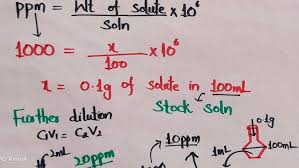 ppm = Wt of solute × 10⁶
Soln
1000 = x × 10⁶
100
x = 0.1g of solute in 100mL
Stock Soln
Further dilution
C₁V₁ = C₂V₂
10ppm
0.1g
2mL
20ppm
1mL
100mL